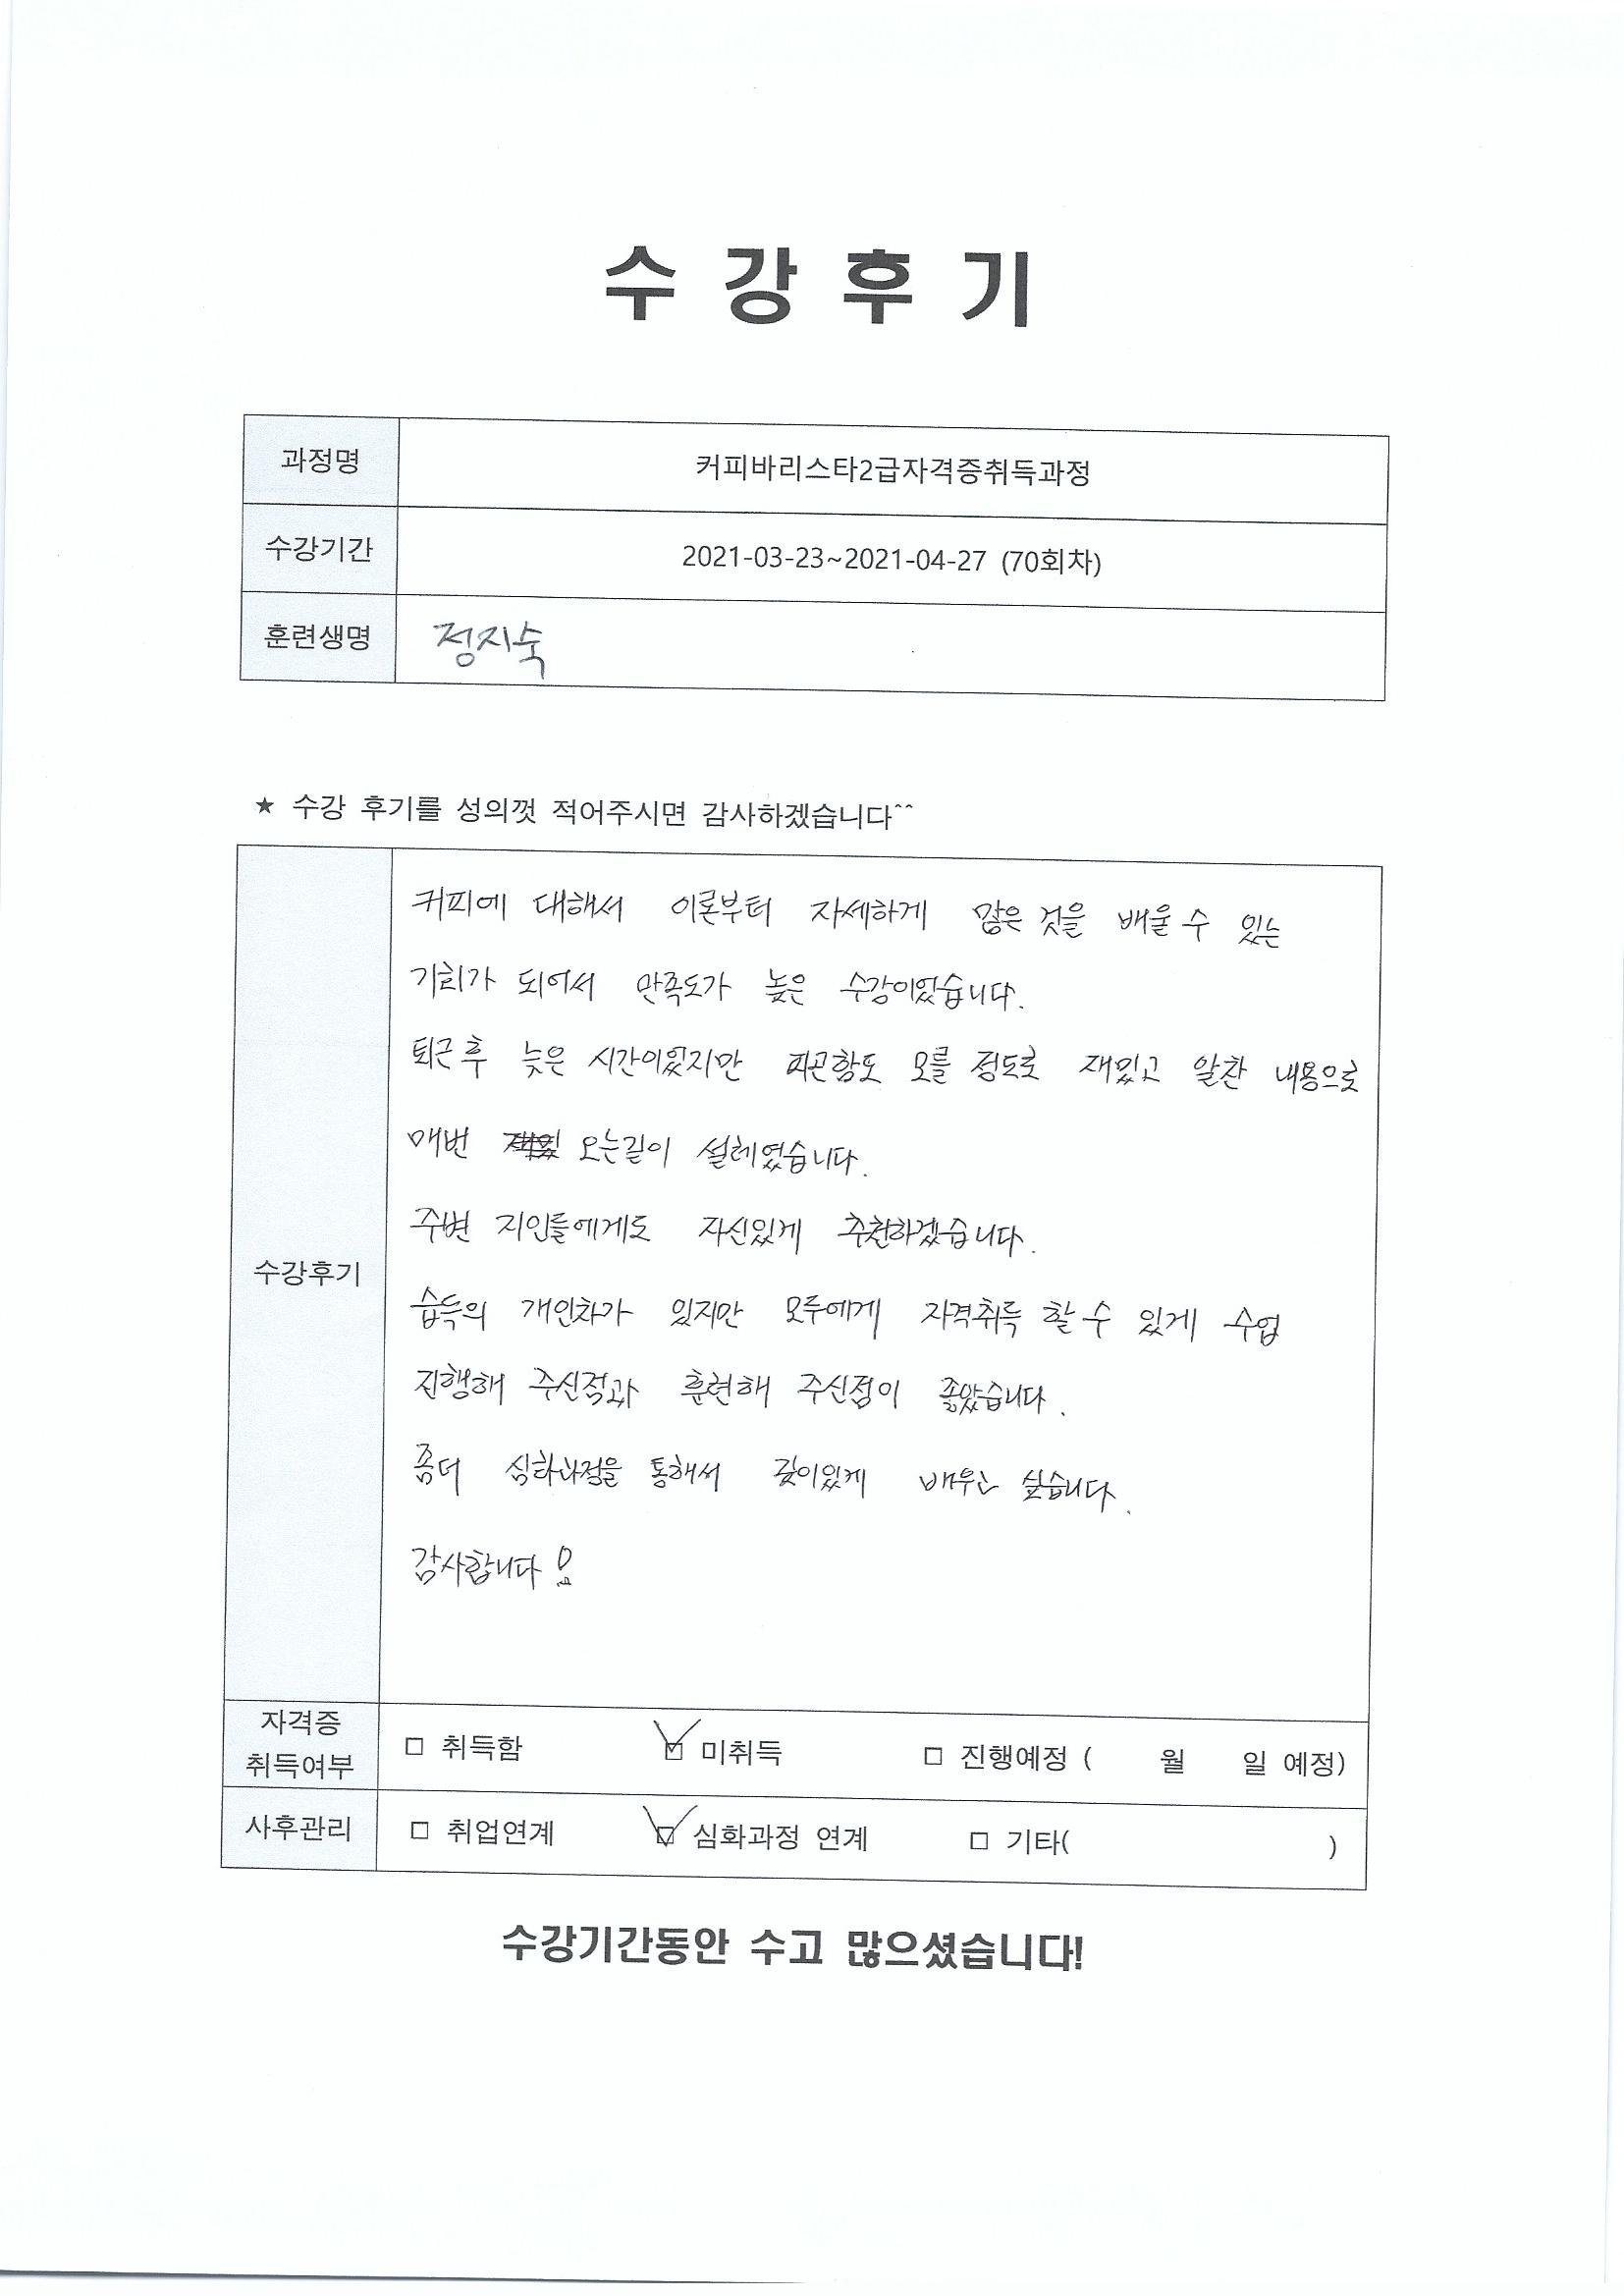 수 강 후 기
과정명 커피바리스타2급자격증취득과정
수강기간 2021-03-23~2021-04-27 (70회차)
훈련생명 정지숙
★ 수강 후기를 성의껏 적어주시면 감사하겠습니다^^
커피에 대해서 이론부터 자세하게 많은 것을 배울 수 있는
기회가 되어서 만족도가 높은 수강이었습니다.
퇴근 후 늦은 시간이었지만 피곤함도 모를 정도로 재밌고 알찬 내용으로
매번 오는길이 설레였습니다.
주변 지인들에게도 자신있게 추천하겠습니다.
수강후기
습득의 개인차가 있지만 모두에게 자격취득 할 수 있게 수업
진행해 주신점과 훈련해 주신점이 좋았습니다.
좀더 심화과정을 통해서 깊이있게 배우고 싶습니다.
감사합니다!
자격증
취득여부 □ 취득함 ☑ 미취득 □ 진행예정 ( 월 일 예정)
사후관리 □ 취업연계 ☑ 심화과정 연계 □ 기타( )
수강기간동안 수고 많으셨습니다!